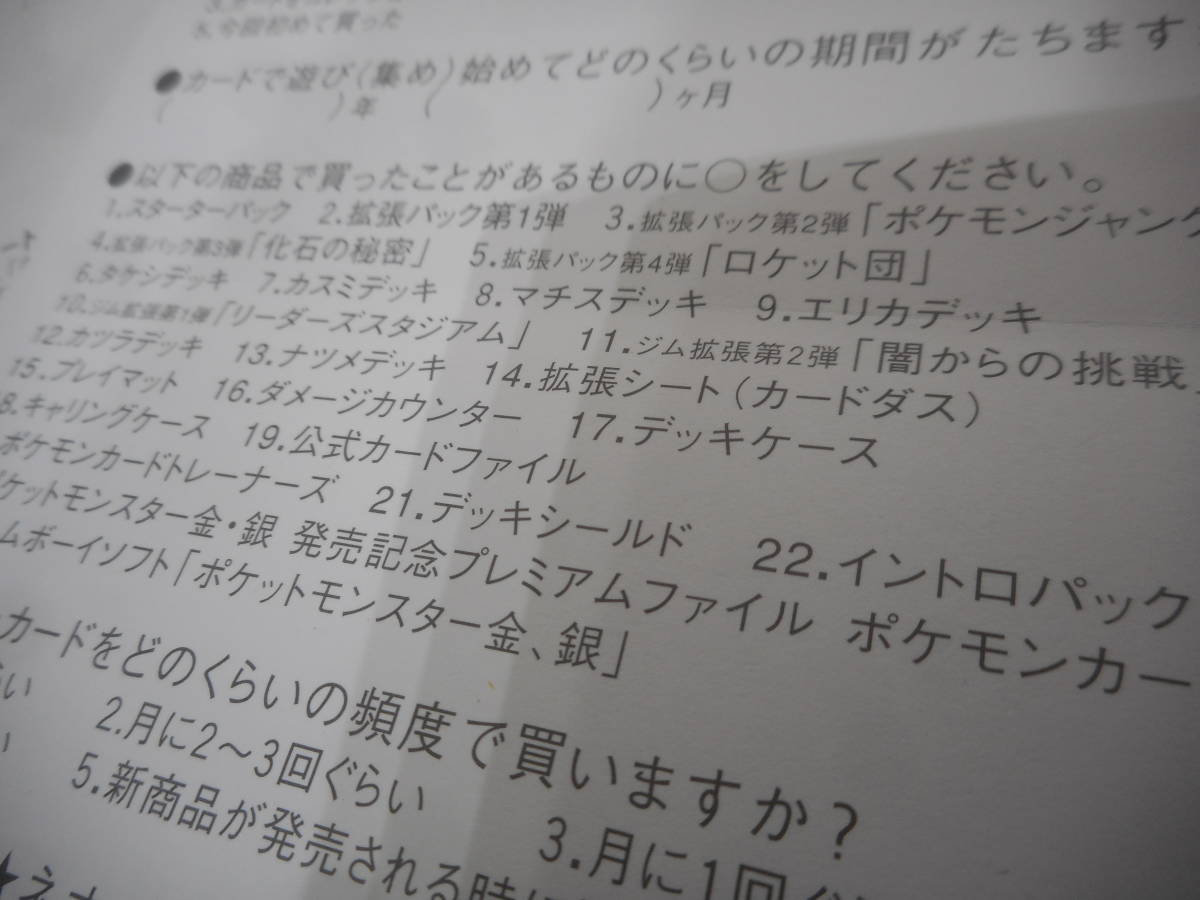 5.今回初めて買った
●カードで遊び(集め)始めてどのくらいの期間がたちます
( )年 ( )ヶ月
●以下の商品で買ったことがあるものに○をしてください。
1.スターターパック 2.拡張パック第1弾 3.拡張パック第2弾「ポケモンジャング
4.拡張パック第3弾「化石の秘密」 5.拡張パック第4弾「ロケット団」
6.タケシデッキ 7.カスミデッキ 8.マチスデッキ 9.エリカデッキ
10.ジム拡張第1弾「リーダーズスタジアム」 11.ジム拡張第2弾「闇からの挑戦」
12.カツラデッキ 13.ナツメデッキ 14.拡張シート(カードダス)
15.プレイマット 16.ダメージカウンター 17.デッキケース
8.キャリングケース 19.公式カードファイル
ポケモンカードトレーナーズ 21.デッキシールド 22.イントロパック
ケットモンスター金・銀 発売記念プレミアムファイル ポケモンカー
ムボーイソフト「ポケットモンスター金、銀」
カードをどのくらいの頻度で買いますか?
らい 2.月に2～3回ぐらい 3.月に1回ぐ
い 5.新商品が発売される時に